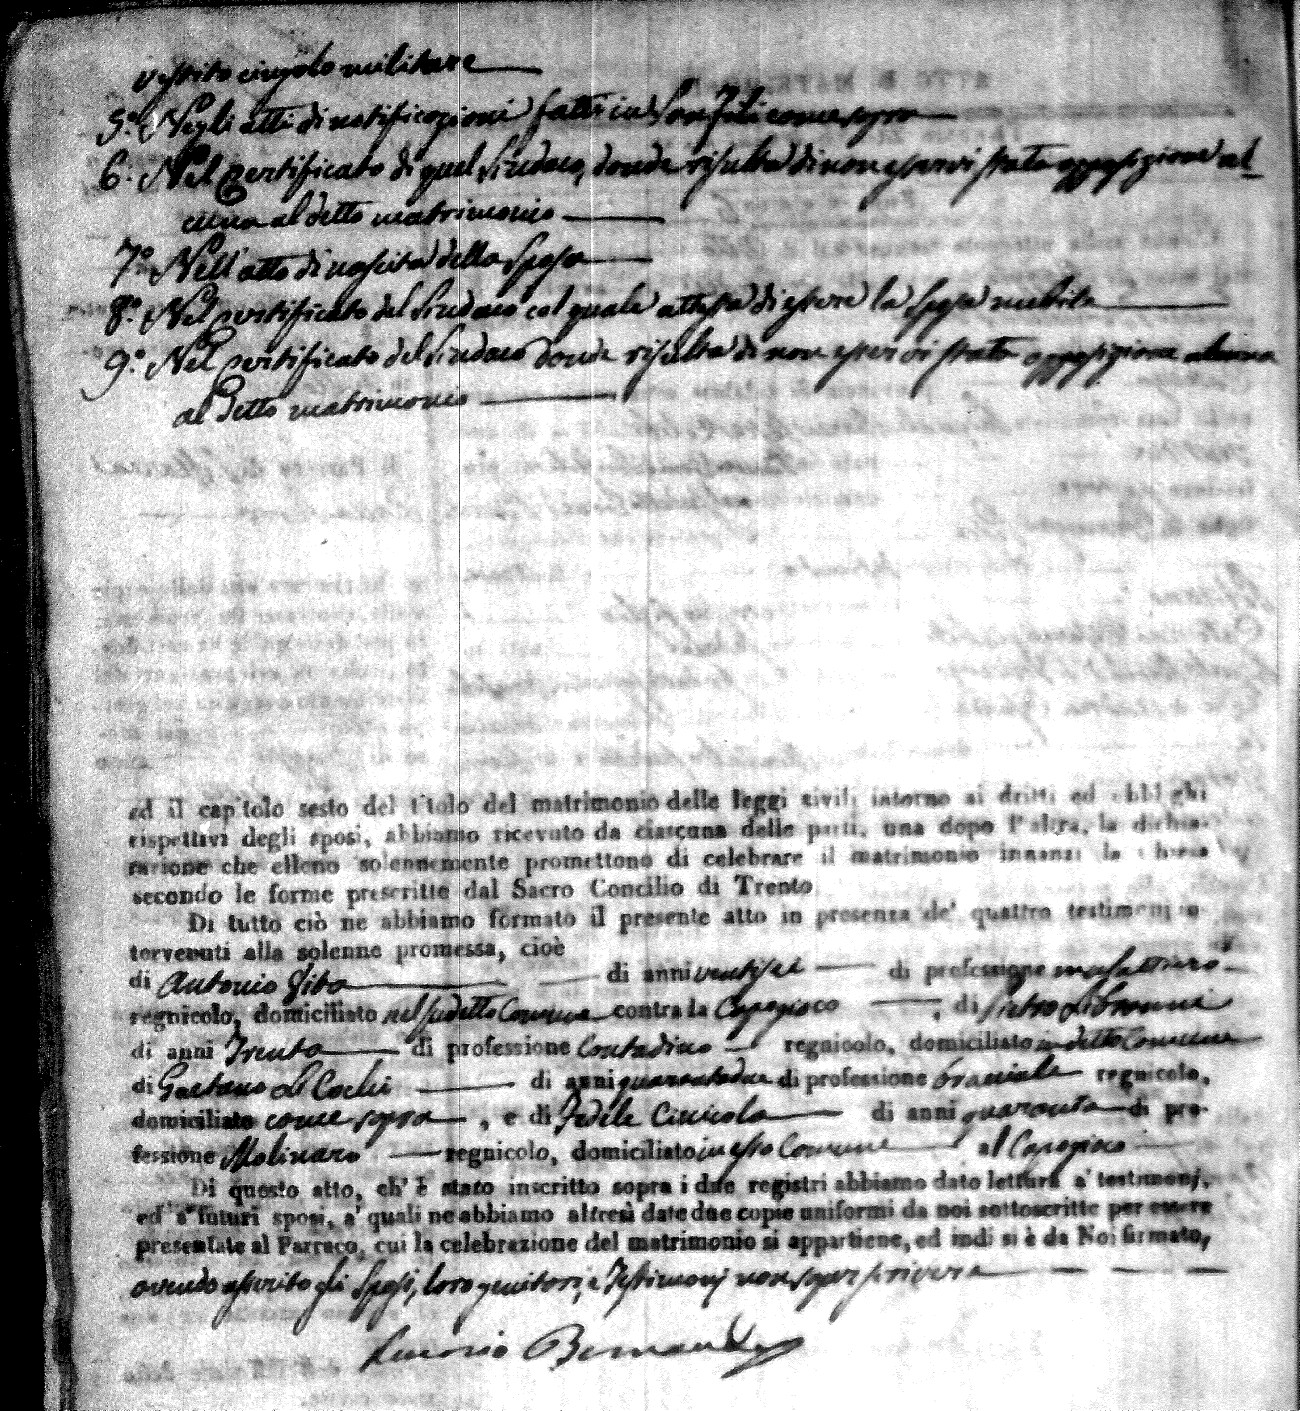 vestito cingolo militare
5.° Negli atti di notificazioni fatti in San Fili come sopra
6.° Nel Certificato di quel Sindaco, donde risulta di non esservi stata opposizione al-
cuna al detto matrimonio
7.° Nell'atto di nascita della Sposa
8.° Nel Certificato del Sindaco col quale attesta di essere la Sposa nubile
9.° Nel Certificato del Sindaco donde risulta di non esservi stata opposizione alcuna
al detto matrimonio
ed il capitolo sesto del titolo del matrimonio delle leggi civili intorno ai dritti ed obblighi
rispettivi degli sposi, abbiamo ricevuto da ciascuna delle parti, una dopo l'altra, la dichia-
razione che elleno solennemente promettono di celebrare il matrimonio innanzi la Chiesa
secondo le forme prescritte dal Sacro Concilio di Trento
Di tutto ciò ne abbiamo formato il presente atto in presenza de' quattro testimonj in
tervenuti alla solenne promessa, cioè
di Antonio Sito di anni ventisei di professione
regnicolo, domiciliato nel sudetto Comune contra la Capogioco, di Pietro
di anni Trenta di professione Contadino regnicolo, domiciliato in detto Comune
di Gaetano di anni quarantadue di professione bracciale regnicolo,
domiciliato come sopra, e di Fedele di anni quaranta di pro-
fessione Molinaro regnicolo, domiciliato in esso Comune al Capogioco
Di questo atto, ch' è stato inscritto sopra i due registri abbiamo dato lettura a' testimonj,
ed a' futuri sposi, a' quali ne abbiamo altresì date due copie uniformi da noi sottoscritte per essere
presentate al Parroco, cui la celebrazione del matrimonio si appartiene, ed indi si è da Noi firmato,
avendo asserito gli Sposi, loro genitori, e Testimonj non saper scrivere